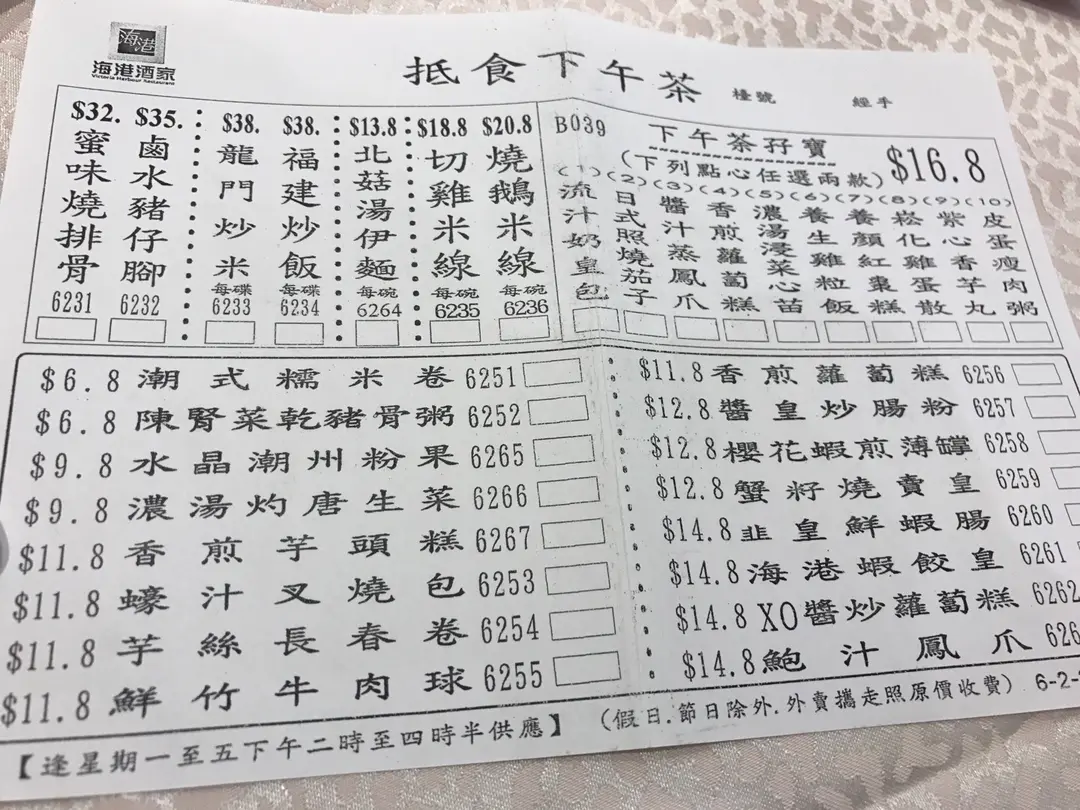 海港
海港酒家
Victoria Harbour Restaurant
抵食下午茶
檯號
經手
$32.
蜜味燒排骨
6231
$35.
鹵水豬仔腳
6232
$38.
龍門炒米
每碟
6233
$38.
福建炒飯
每碟
6234
$13.8
北菇湯伊麵
每碗
6264
$18.8
切雞米線
每碗
6235
$20.8
燒鵝米線
每碗
6236
B039
下午茶孖寶
$16.8
(下列點心任選兩款)
(1)流汁奶皇包
(2)日式照燒茄子
(3)醬汁蒸鳳爪
(4)香煎蘿蔔糕
(5)濃湯浸菜心苗
(6)養生雞粒飯
(7)養顏紅棗糕
(8)崧化雞蛋散
(9)紫心香芋丸
(10)皮蛋瘦肉粥
$6.8 潮式糯米卷 6251
$6.8 陳腎菜乾豬骨粥 6252
$9.8 水晶潮州粉果 6265
$9.8 濃湯灼唐生菜 6266
$11.8 香煎芋頭糕 6267
$11.8 蠔汁叉燒包 6253
$11.8 芋絲長春卷 6254
$11.8 鮮竹牛肉球 6255
$11.8 香煎蘿蔔糕 6256
$12.8 醬皇炒腸粉 6257
$12.8 櫻花蝦煎薄罉 6258
$12.8 蟹籽燒賣皇 6259
$14.8 韭皇鮮蝦腸 6260
$14.8 海港蝦餃皇 6261
$14.8 XO醬炒蘿蔔糕 6262
$14.8 鮑汁鳳爪 626
【逢星期一至五下午二時至四時半供應】
(假日.節日除外.外賣攜走照原價收費) 6-2-